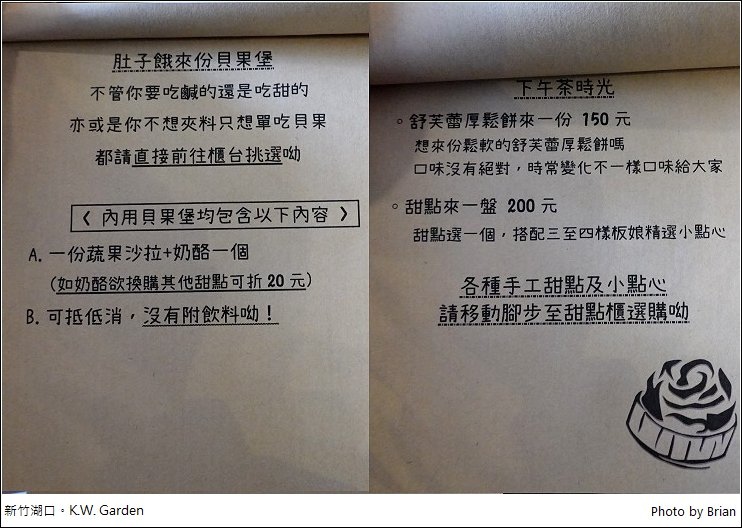 肚子餓來份貝果堡
不管你要吃鹹的還是吃甜的
亦或是你不想夾料只想單吃貝果
都請直接前往櫃台挑選呦
《 內用貝果堡均包含以下內容 》
A. 一份蔬果沙拉+奶酪一個
(如奶酪欲換購其他甜點可折20元)
B. 可抵低消，沒有附飲料呦！
下午茶時光
。舒芙蕾厚鬆餅來一份 150 元
想來份鬆軟的舒芙蕾厚鬆餅嗎
口味沒有絕對，時常變化不一樣口味給大家
。甜點來一盤 200 元
甜點選一個，搭配三至四樣板娘精選小點心
各種手工甜點及小點心
請移動腳步至甜點櫃選購呦
新竹湖口。K.W. Garden
Photo by Brian